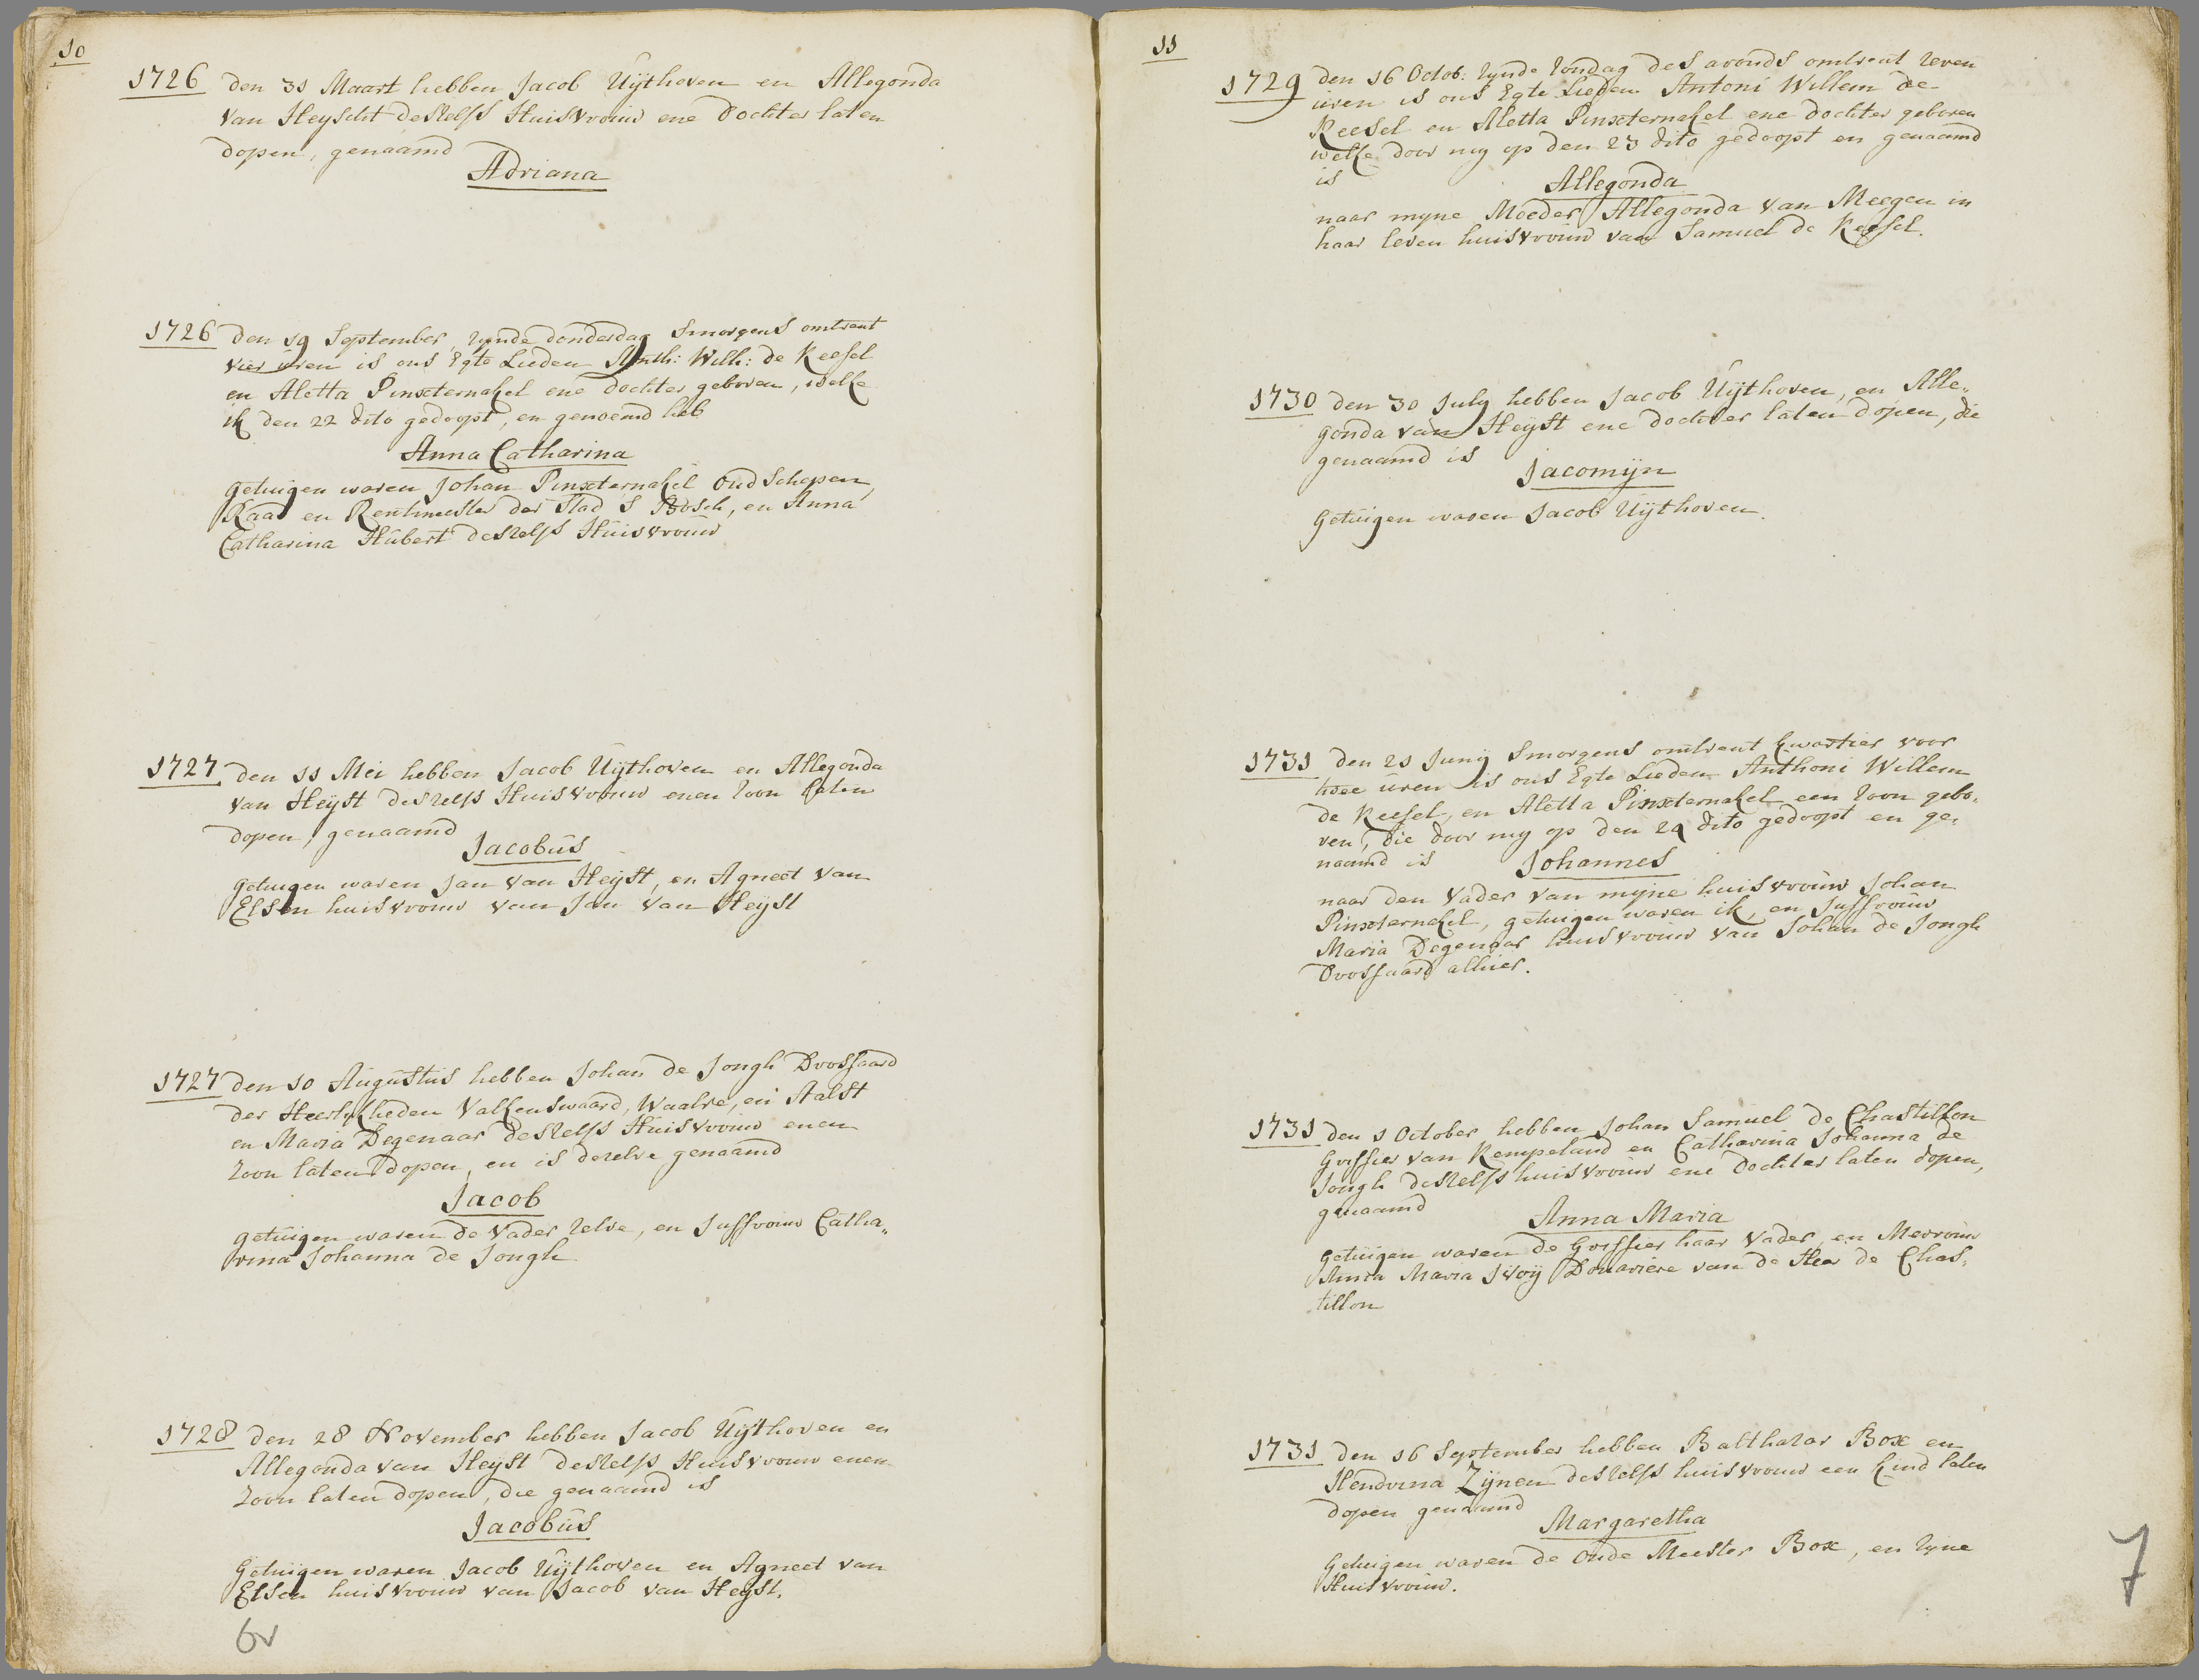 10
1726 den 31 Maart hebben Jacob Uÿthoven en Allegonda
van Heyscht deszelfs Huisvrouw ene Dochter laten
dopen, genaamd
Adriana
1726 den 19 September, zynde donderdag Smorgens omtrent
vier uren is ons Egte Lieden Anth: Wilh: de Keesel
en Aletta Pinxternakel ene dochter geboren, welke
ik den 22 dito gedoopt, en genoemd heb
Anna Catharina
Getuigen waren Johan Pinxternakel Oud Schepen,
Raad en Rentmeester der Stad S Bosch, en Anna
Catharina Hubert deszelfs Huisvrouw
1727 den 11 Mei hebben Jacob Uÿthoven en Allegonda
van Heÿst deszelfs Huisvrouw enen zoon laten
dopen, genaamd
Jacobus
Getuigen waren Jan van Heÿst, en Agneet van
Elsen huisvrouw van Jan van Heÿst
1727 den 10 Augustus hebben Johan de Jongh Drossaard
der Heerlykheden Valkenswaard, Waalre, en Aalst
en Maria Degenaar deszelfs Huisvrouw enen
zoon laten dopen, en is dezelve genaamd
Jacob
getuigen waren de Vader zelve, en Juffrouw Catha„
rina Johanna de Jongh
1728 den 28 November hebben Jacob Uÿthoven en
Allegonda van Heÿst deszelfs Huisvrouw enen
zoon laten dopen, die genaamd is
Jacobus
Getuigen waren Jacob Uÿthoven en Agneet van
Elsen huisvrouw van Jacob van Heÿst.
6v
11
1729 den 16 Octob: zynde zondag des avonds omtrent zeven
uren is ons Egte Lieden Antoni Willem de
Keesel en Aletta Pinxternakel ene dochter geboren
welke door my op den 23 dito gedoopt en genaamd
is
Allegonda
naar myne Moeder Allegonda van Meegen in
haar leven huisvrouw van Samuel de Keesel.
1730 den 30 July hebben Jacob Uÿthoven, en Alle„
gonda van Heÿst ene dochter laten dopen, die
genaamd is
Jacomÿn
Getuigen waren Jacob Uÿthoven.
1731 den 21 Junÿ Smorgens omtrent kwartier voor
twee uren is ons Egte Lieden Anthoni Willem
de Keesel, en Aletta Pinxternakel een zoon gebo„
ren, die door my op den 24 dito gedoopt en ge„
naamd is
Johannes
naar den Vader van myne huisvrouw Johan
Pinxternakel, getuigen waren ik, en Juffrouw
Maria Degenaar huisvrouw van Johan de Jongh
Drossaard alhier.
1731 den 1 October hebben Johan Samuel de Chastillon
Griffier van Kempeland en Catharina Johanna de
Jongh deszelfs huisvrouw ene dochter laten dopen,
genaamd
Anna Maria
Getuigen waren de Griffier haar Vader, en Mevrouw
Anna Maria Ivoÿ Douariere van de Heer de Chas„
tillon
1731 den 16 September hebben Balthazar Box en
Hendrina Zÿnen deszelfs huisvrouw een kind laten
dopen genaamd
Margaretha
Getuigen waren de Oude Meester Box, en zyne
Huisvrouw.
7